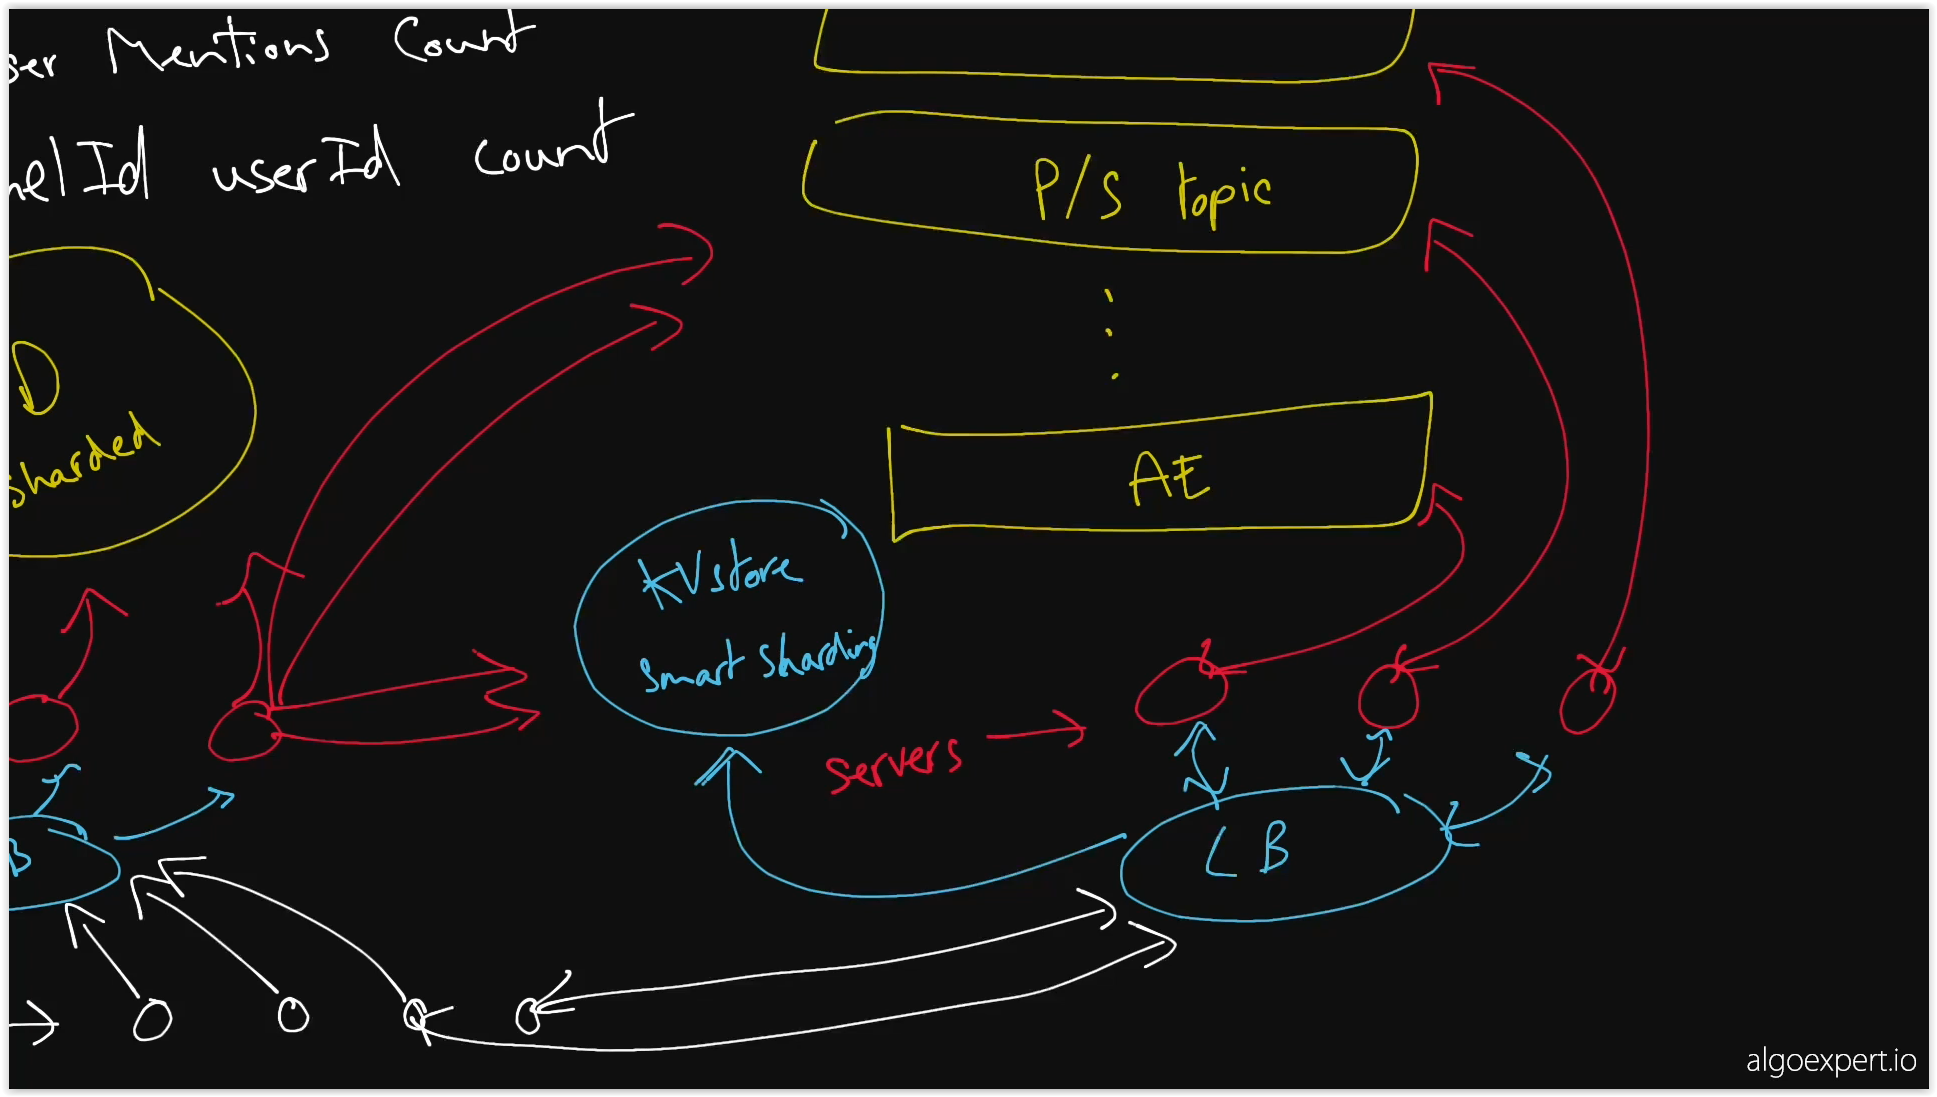 ser Mentions Count
nelId userId count
P/S topic
D
sharded
AE
KVstore
Smart Sharding
Servers
B
LB
algoexpert.io